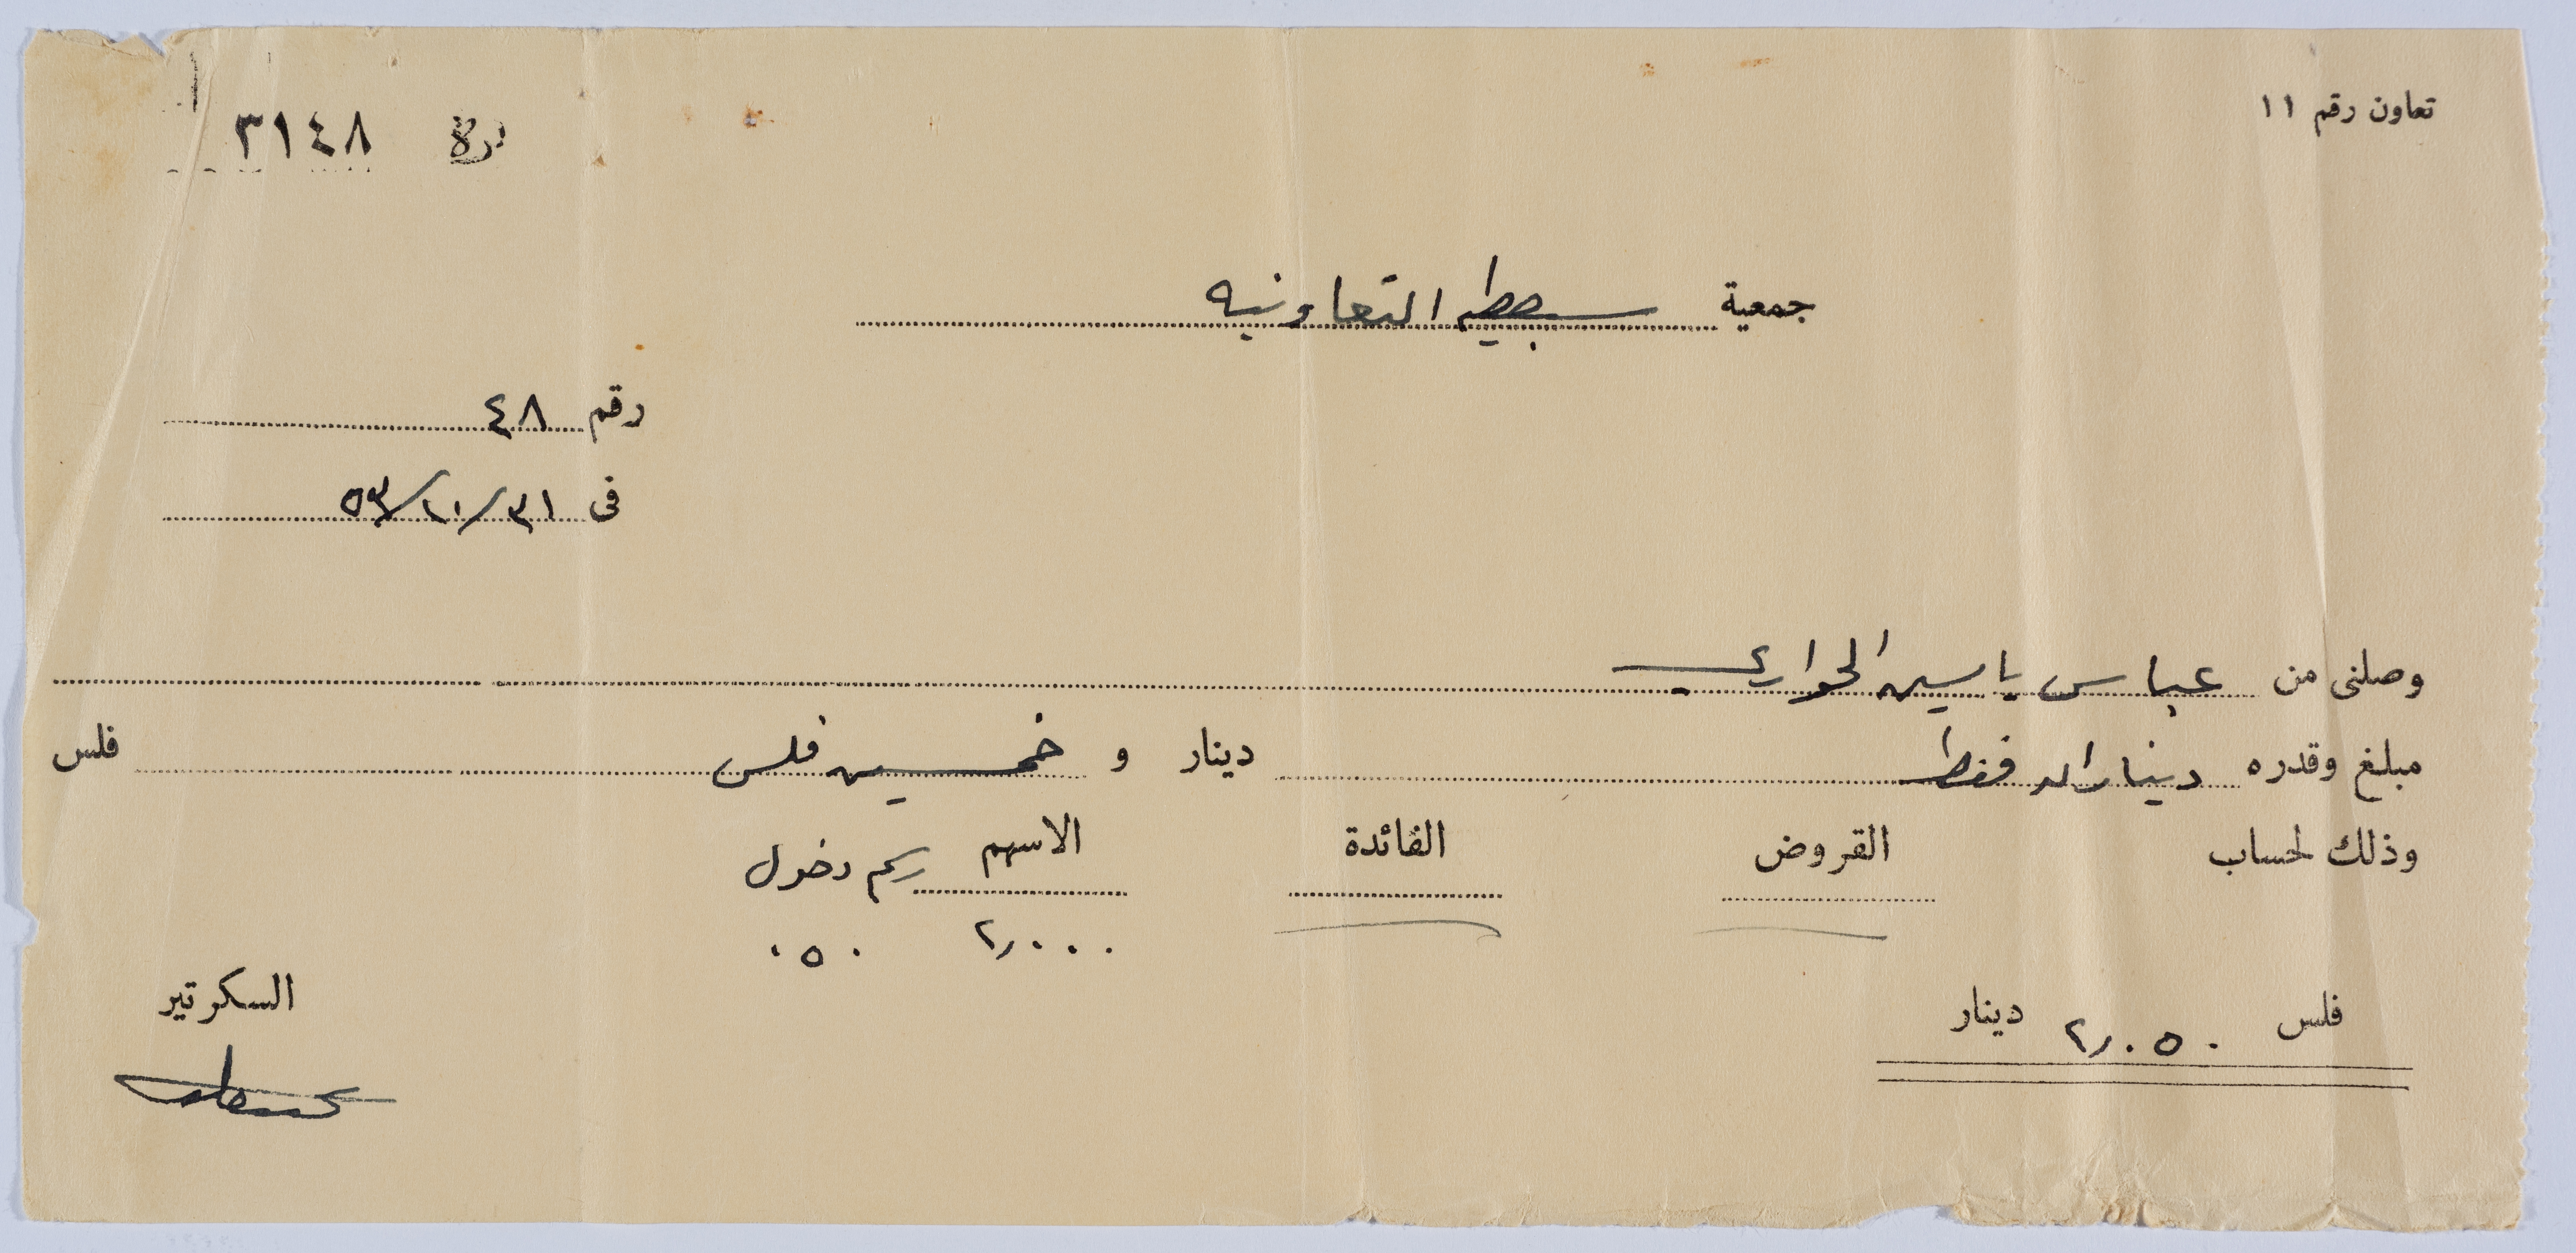 تعاون رقم ١١
نمرة ٣١٤٨
جمعية سبسطيه التعاونيه
رقم ٤٨
فى ٣١/١٠/٥٣
وصلنى من عباس ياسين الحواري
مبلغ وقدره ديناران فقط دينار و خمسين فلس فلس
وذلك لحساب القروض الفائدة الاسهم رسم دخول
٢٫٠٠٠ ٠٥٠
فلس ٢٫٠٥٠ دينار
السكرتير